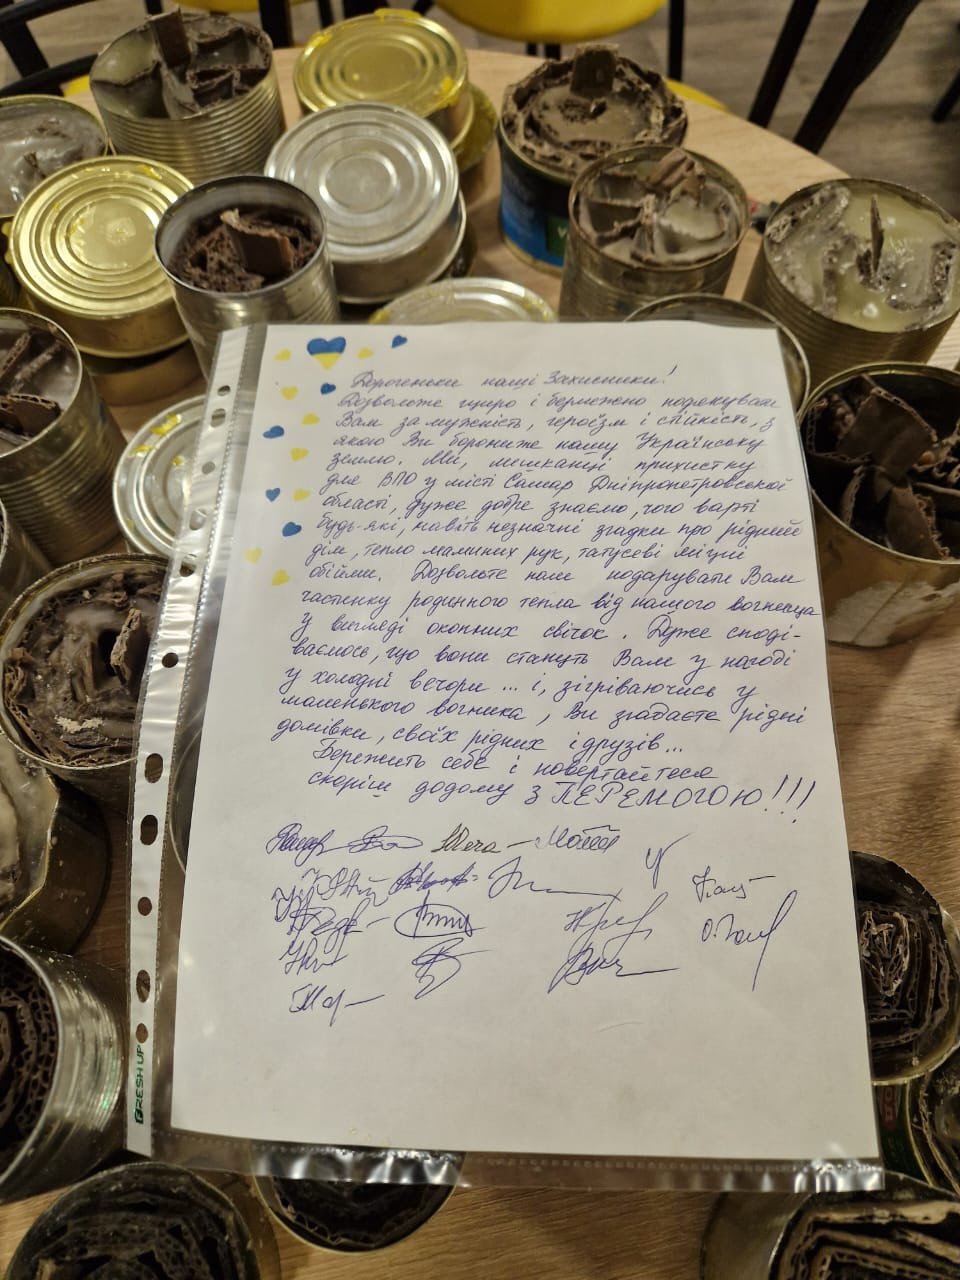 Дорогенькі наші Захисники!
Дозвольте щиро і бережно подякувати
Вам за мужність, героїзм і стійкість, з
якою Ви бороните нашу Українську
землю. Ми, мешканці прихистку
для ВПО у місті Самар Дніпропетровської
області, дуже добре знаємо, чого варті
будь-які, навіть незначні згадки про рідний
дім, тепло маминих рук, татусеві міцні
обійми. Дозвольте нам подарувати Вам
частинку родинного тепла від нашого вогнища
у вигляді окопних свічок. Дуже споді-
ваємось, що вони стануть Вам у нагоді
у холодні вечори ... і, зігріваючись у
маленького вогника, Ви згадаєте рідні
домівки, своїх рідних і друзів...
Бережіть себе і повертайтеся
скоріш додому з ПЕРЕМОГОЮ!!!
FRESH UP